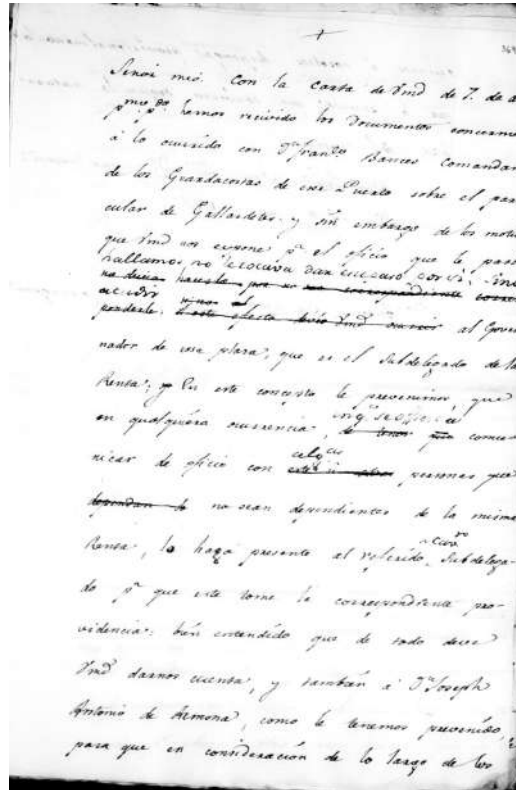 Señor mio. Con la carta de Vmd de 7. de a
pmo. pdo. hemos recivido los Documentos concern
à lo ocurrido con Dn. Franco. Bances Comandan
de los Guardacostas de ese Puerto sobre el par
cular de Gallardetes, y sin embargo de los moti
que Vmd nos expone pa. el oficio que le paso
hallamos no le tocava dar sino
al Gover
nador de esa plaza, que es el Subdelegado de la
Renta; y En este concepto le prevenimos, que
en qualquiera ocurrencia, comu
nicar de oficio con personas que
dependan de no sean dependientes de la misma
Renta, lo haga presente al referido Subdelega-
do pa. que este tome la correspondiente pro-
videncia: bien entendido que de todo deve
Vmd darnos cuenta, y tambien à Dn. Joseph
Antonio de Armona, como le tenemos prevenido,
para que en consideración de lo largo de los